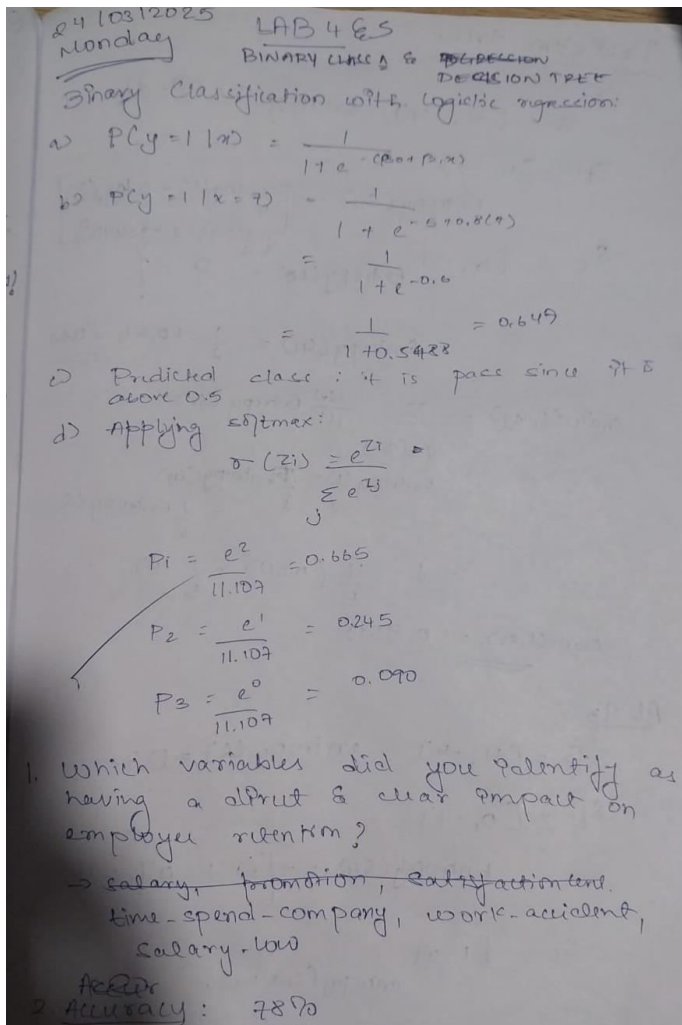 24/03/2025
Monday
LAB 4 & 5
BINARY CLASS &
DECISION TREE
Binary Classification with logistic regression:
a) P(y=1|x) = 1 / 1+e^-(β0+β1x)
b) P(y=1|x=7) = 1 / 1+e^-5+0.8(7)
= 1 / 1+e^-0.6
= 1 / 1+0.5488 = 0.649
c) Predicted class : it is pass since it is
above 0.5
d) Applying softmax:
σ(Zi) = e^Zi / Σj e^Zj
P1 = e^2 / 11.107 = 0.665
P2 = e^1 / 11.107 = 0.245
P3 = e^0 / 11.107 = 0.090
1. Which variables did you identify as
having a direct & clear impact on
employee retention?
→ salary, promotion, satisfaction level.
time-spend-company, work-accident,
salary-low
2. Accuracy : 78%